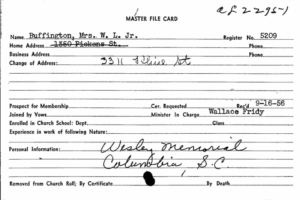 MASTER FILE CARD
Name Buffington, Mrs. W. L. Jr. Register No. 5209
Home Address 1550 Pickens St. Phone
Business Address Phone
Change of Address: 3311 St
Prospect for Membership Cor. Requested Rec'd 9-16-56
Joined by Vows Minister in Charge Wallace Fridy
Enrolled in Church School: Dept. Class
Experience in work of following Nature:
Personal Information: Wesley Memorial
Columbia, S.C
Removed from Church Roll; By Certificate By Death